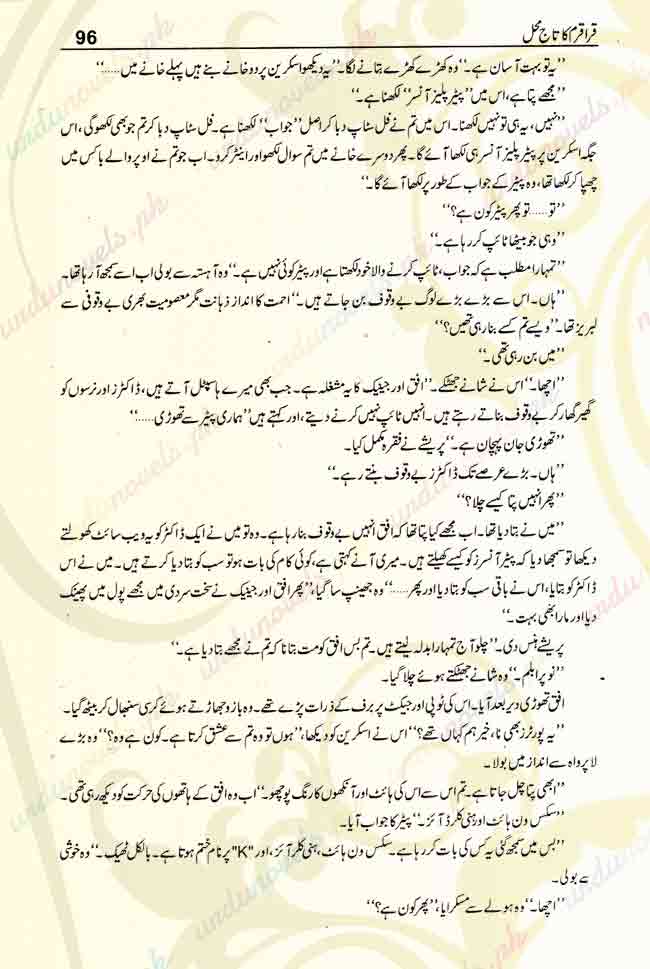 قراقرم کا تاج محل 96
’’یہ تو بہت آسان ہے۔‘‘ وہ کھڑے کھڑے بتانے لگا۔ ’’یہ دیکھو اسکرین پر دو خانے بنے ہیں پہلے خانے میں……‘‘
’’مجھے پتا ہے، اس میں ’’پیٹر پلیز آنسر‘‘ لکھنا ہے۔‘‘
’’نہیں، یہ ہی تو نہیں لکھنا۔ اس میں تم نے فل سٹاپ دبا کر اصل ’’جواب‘‘ لکھنا ہے۔ فل سٹاپ دبا کر تم جو بھی لکھو گی، اس
جگہ اسکرین پر پیٹر پلیز آنسر ہی لکھا آئے گا۔ پھر دوسرے خانے میں تم سوال لکھو اور اینٹر کرو۔ اب جو تم نے اوپر والے باکس میں
چھپا کر لکھا تھا، وہ پیٹر کے جواب کے طور پر لکھا آئے گا۔‘‘
’’تو…… تو پھر پیٹر کون ہے؟‘‘
’’وہی جو بیٹھا ٹائپ کر رہا ہے۔‘‘
’’تمہارا مطلب ہے کہ جواب، ٹائپ کرنے والا خود لکھتا ہے اور پیٹر کوئی نہیں ہے۔‘‘ وہ آہستہ سے بولی اب اسے سمجھ آ رہا تھا۔
’’ہاں۔ اس سے بڑے بڑے لوگ بے وقوف بن جاتے ہیں۔‘‘ احمت کا انداز ذہانت مگر معصومیت بھری بے وقوفی سے
لبریز تھا۔ ’’ویسے تم کسے بنا رہی تھیں؟‘‘
’’میں بن رہی تھی۔‘‘
’’اچھا۔‘‘ اس نے شانے جھٹکے۔ ’’افق اور جینیک کا یہ مشغلہ ہے۔ جب بھی میرے ہاسپٹل آتے ہیں، ڈاکٹرز اور نرسوں کو
گھیر گھار کر بے وقوف بناتے رہتے ہیں۔ انہیں ٹائپ نہیں کرنے دیتے، اور کہتے ہیں ’’ہماری پیٹر سے تھوڑی……‘‘
’’تھوڑی جان پہچان ہے۔‘‘ پریشے نے فقرہ مکمل کیا۔
’’ہاں۔ بڑے عرصے تک ڈاکٹرز بے وقوف بنتے رہے۔‘‘
’’پھر انہیں پتا کیسے چلا؟‘‘
’’میں نے بتا دیا تھا۔ اب مجھے کیا پتا تھا کہ افق انہیں بے وقوف بنا رہا ہے۔ وہ تو میں نے ایک ڈاکٹر کو یہ ویب سائٹ کھولتے
دیکھا تو سمجھا دیا کہ پیٹر آنسرز کو کیسے کھیلتے ہیں۔ میری آنے کہتی ہے، کوئی کام کی بات ہو تو سب کو بتا دیا کرتے ہیں۔ میں نے اس
ڈاکٹر کو بتایا، اس نے باقی سب کو بتا دیا اور پھر……‘‘ وہ جھینپ سا گیا، ’’پھر افق اور جینیک نے سخت سردی میں مجھے پول میں پھینک
دیا اور مارا بھی بہت۔‘‘
پریشے ہنس دی۔ ’’چلو آج تمہارا بدلہ لیتے ہیں۔ تم بس افق کو مت بتانا کہ تم نے مجھے بتا دیا ہے۔‘‘
’’نو پرابلم۔‘‘ وہ شانے جھٹکتے ہوئے چلا گیا۔
افق تھوڑی دیر بعد آیا۔ اس کی ٹوپی اور جیکٹ پر برف کے ذرات پڑے تھے۔ وہ بازو جھاڑتے ہوئے کرسی سنبھال کر بیٹھ گیا۔
’’یہ پورٹرز بھی نا، خیر ہم کہاں تھے؟‘‘ اس نے اسکرین کو دیکھا، ’’ہوں تو وہ تم سے عشق کرتا ہے۔ کون ہے وہ؟‘‘ وہ بڑے
لاپرواہ سے انداز میں بولا۔
’’ابھی پتا چل جاتا ہے۔ تم اس سے اس کی ہائٹ اور آنکھوں کا رنگ پوچھو۔‘‘ اب وہ افق کے ہاتھوں کی حرکت کو دیکھ رہی تھی۔
’’سکس ون ہائٹ اور ہنی کلرڈ آئز۔‘‘ پیٹر کا جواب آیا۔
’’بس میں سمجھ گئی یہ کس کی بات کر رہا ہے۔ سکس ون ہائٹ، ہنی کلر آئز، اور "K" پر نام ختم ہوتا ہے۔ بالکل ٹھیک۔‘‘ وہ خوشی
سے بولی۔
’’اچھا۔‘‘ وہ ہولے سے مسکرایا، ’’پھر کون ہے؟‘‘